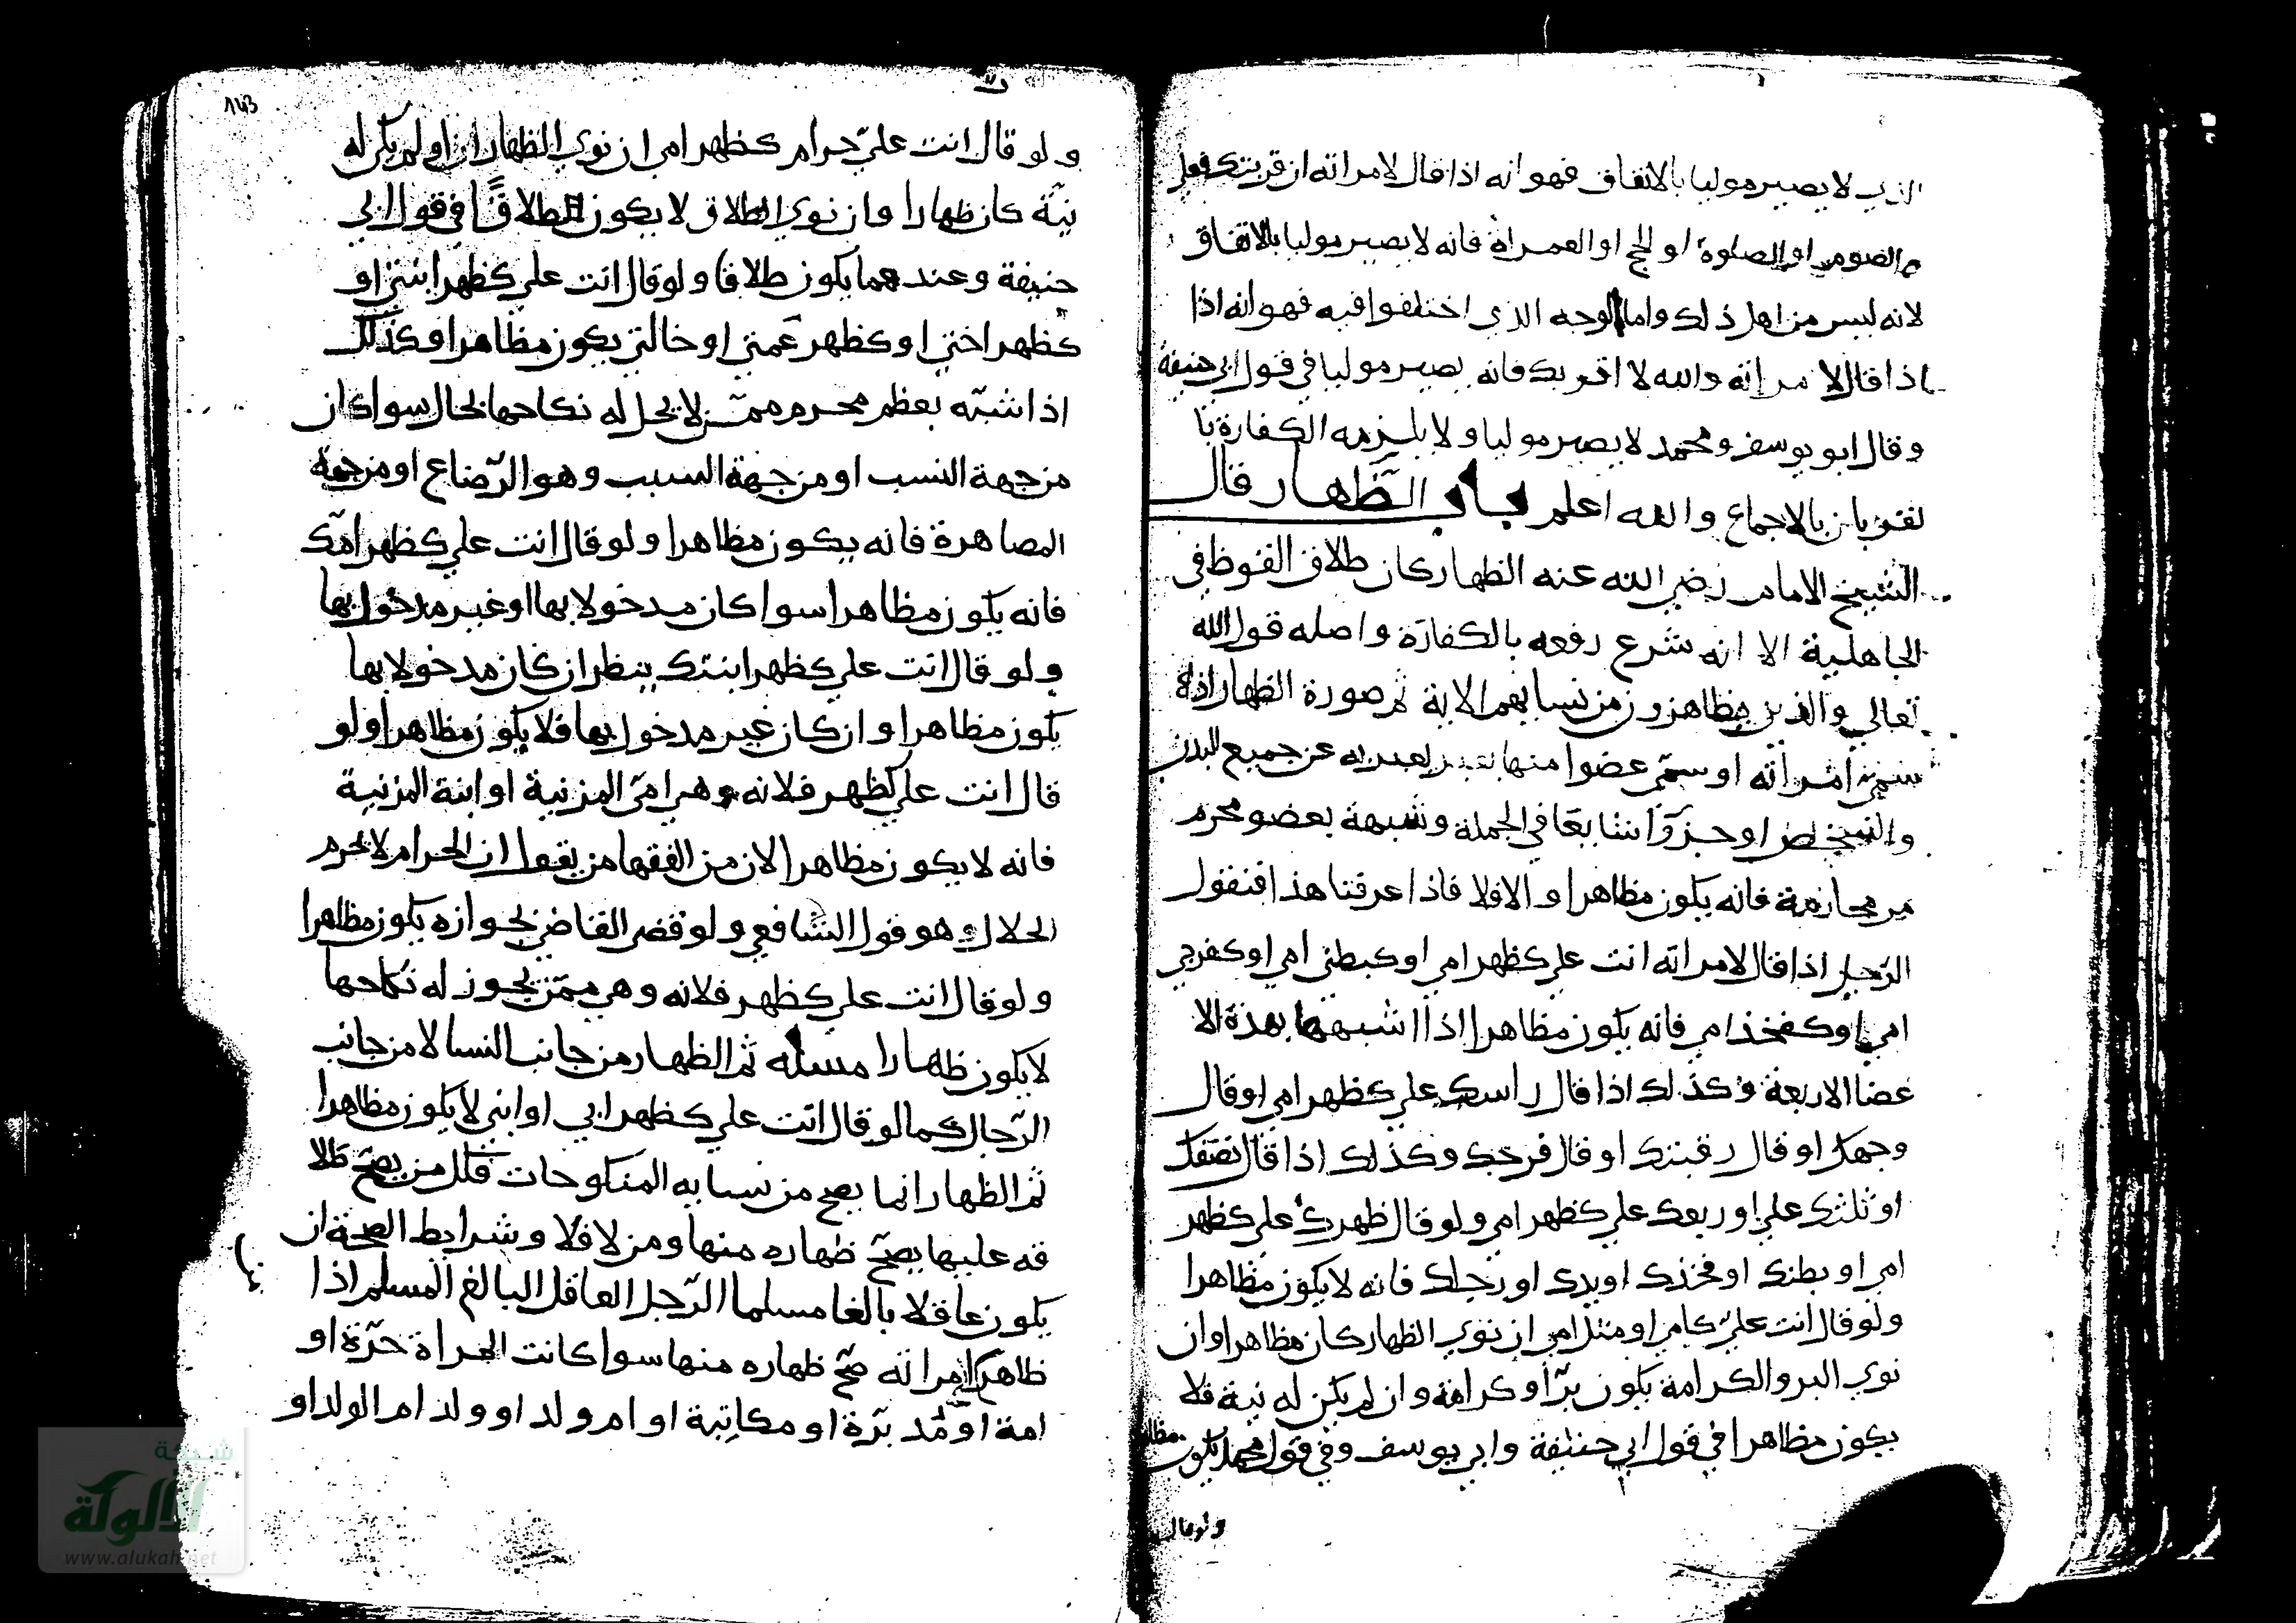 الذي لا يصير موليا بالاتفاق فهو انه اذا قال لامراته ان قربتك فعلي
الصوم او الصلوة او الحج او العمراة فانه لا يصير موليا بالاتفاق
لانه ليس من اهل ذلك واما الوجه الذي اختلفوا فيه فهو انه اذا
اذا قال لامراته والله لا اقربك فانه يصير موليا في قول ابي حنيفة
وقال ابو يوسف ومحمد لا يصير موليا ولا يلزمه الكفارة
بالاجماع والله اعلم باب الظهار قال
الشيخ الامام رضي الله عنه الظهار كان طلاق في
الجاهلية الا انه شرع رفعه بالكفارة واصله قول الله
تعالي والذين يظاهرون من نسايهم الاية ثم صورة الظهار اذا
سمي امراته او سمي عضوا منها يعبر به عن جميع البدن
او جزوا شايعا في الجملة وشبهة بعضو محرم
من محارمه فانه يكون مظاهرا والا فلا فاذا عرفنا هذا فنقول
الرجل اذا قال لامراته انت علي كظهر امي او كبطن امي او كفرج
امي او كفخذ امي فانه يكون مظاهرا اذا شبهها بهذة الا
عضا الاربعة وكذلك اذا قال راسك علي كظهر امي او قال
وجهك او قال رقبتك او قال فرجك وكذلك اذا قال نصفك
او ثلثك علي او ربعك علي كظهر امي ولو قال ظهرك علي كظهر
امي او بطنك او فخذك او يدك او رجلك فانه لا يكون مظاهرا
ولو قال انت علي كامي او مثل امي ان نوي الظهار كان مظاهرا وان
نوي البر والكرامة يكون برا وكرامة وان لم يكن له نية فلا
يكون مظاهرا في قول ابي حنيفة وابي يوسف وفي قول محمد يكون مظاهرا
ولو قال
143
ولو قال انت علي حرام كظهر امي ان نوي الظهار او لم يكن له
نية كان ظهارا وان نوي الطلاق لا يكون طلاقا في قول ابي
حنيفة وعندهما يكون طلاقا ولو قال انت علي كظهر ابنتي او
كظهر اختي او كظهر عمتي او خالتي يكون مظاهرا وكذلك
اذا شبه بعظم محرم ممن لا يحل له نكاحها بحال سوا كان
من جهة النسب او من جهة السبب وهو الرضاع او من جهة
المصاهرة فانه يكون مظاهرا ولو قال انت علي كظهر امك
فانه يكون مظاهرا سوا كان مدخولا بها او غير مدخول بها
ولو قال انت علي كظهر ابنتك ينظر ان كان مدخولا بها
يكون مظاهرا وان كان غير مدخول بها فلا يكون مظاهرا ولو
قال انت علي كظهر فلانه وهي امي المزنية او ابنة المزنية
فانه لا يكون مظاهرا لان من الفقها من يقول ان الحرام لا يحرم
الحلال وهو قول الشافعي ولو قضي القاضي بجوازه يكون مظاهرا
ولو قال انت علي كظهر فلانه وهي ممن يجوز له نكاحها
لا يكون ظهارا مسله ثم الظهار من جانب النسا لا من جانب
الرجال كما لو قال انت علي كظهر ابي او ابني لا يكون مظاهرا
ثم الظهار انما يصح من نسايه المنكوحات فكل من يصح طلا
قه عليها يصح ظهاره منها ومن لا فلا وشرايط الصحة ان
يكون عاقلا بالغا مسلما الرجل العاقل البالغ المسلم اذا
ظاهر امراته صح ظهاره منها سوا كانت المراة حرة او
امة او مدبرة او مكاتبة او ام ولد او ولد ام الولد او
شبكة
الألوكة
www.alukah.net